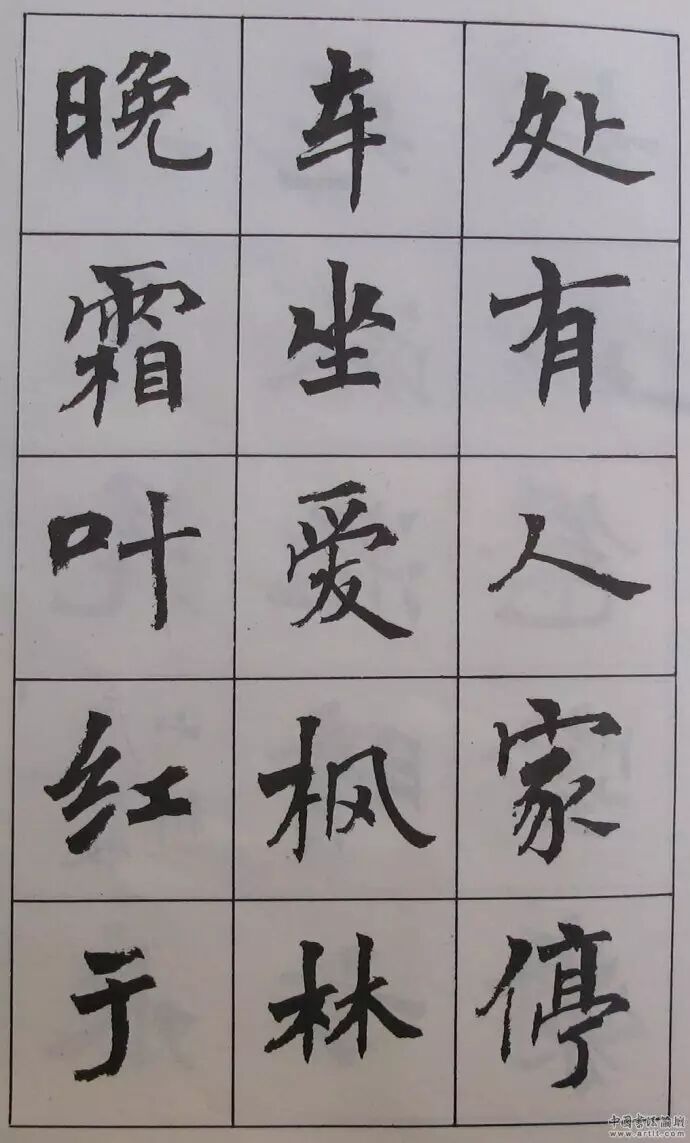 处有人家停
车坐爱枫林
晚霜叶红于
中国书法论坛
www.artlt.com